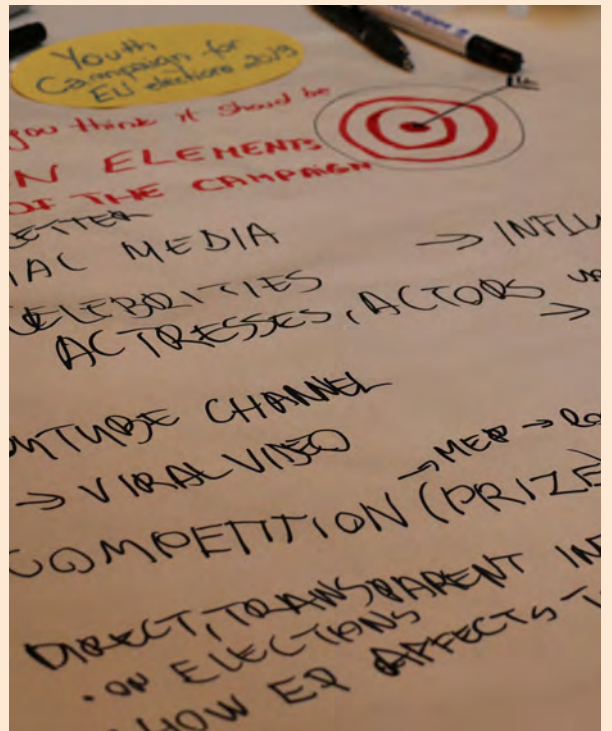 Youth
Campaign for
EU elections 2019
you think it should be
N ELEMENTS
OF THE CAMPAIGN
ETTER
IAL MEDIA → INFLU
CELEBRITIES
ACTRESSES, ACTORS
→
OUTUBE CHANNEL
→ VIRAL VIDEO
→ MEP →
COMPETITION (PRIZE)
DIRECT, TRANSPARENT IN
• ON ELECTIONS
HOW EP AFFECTS